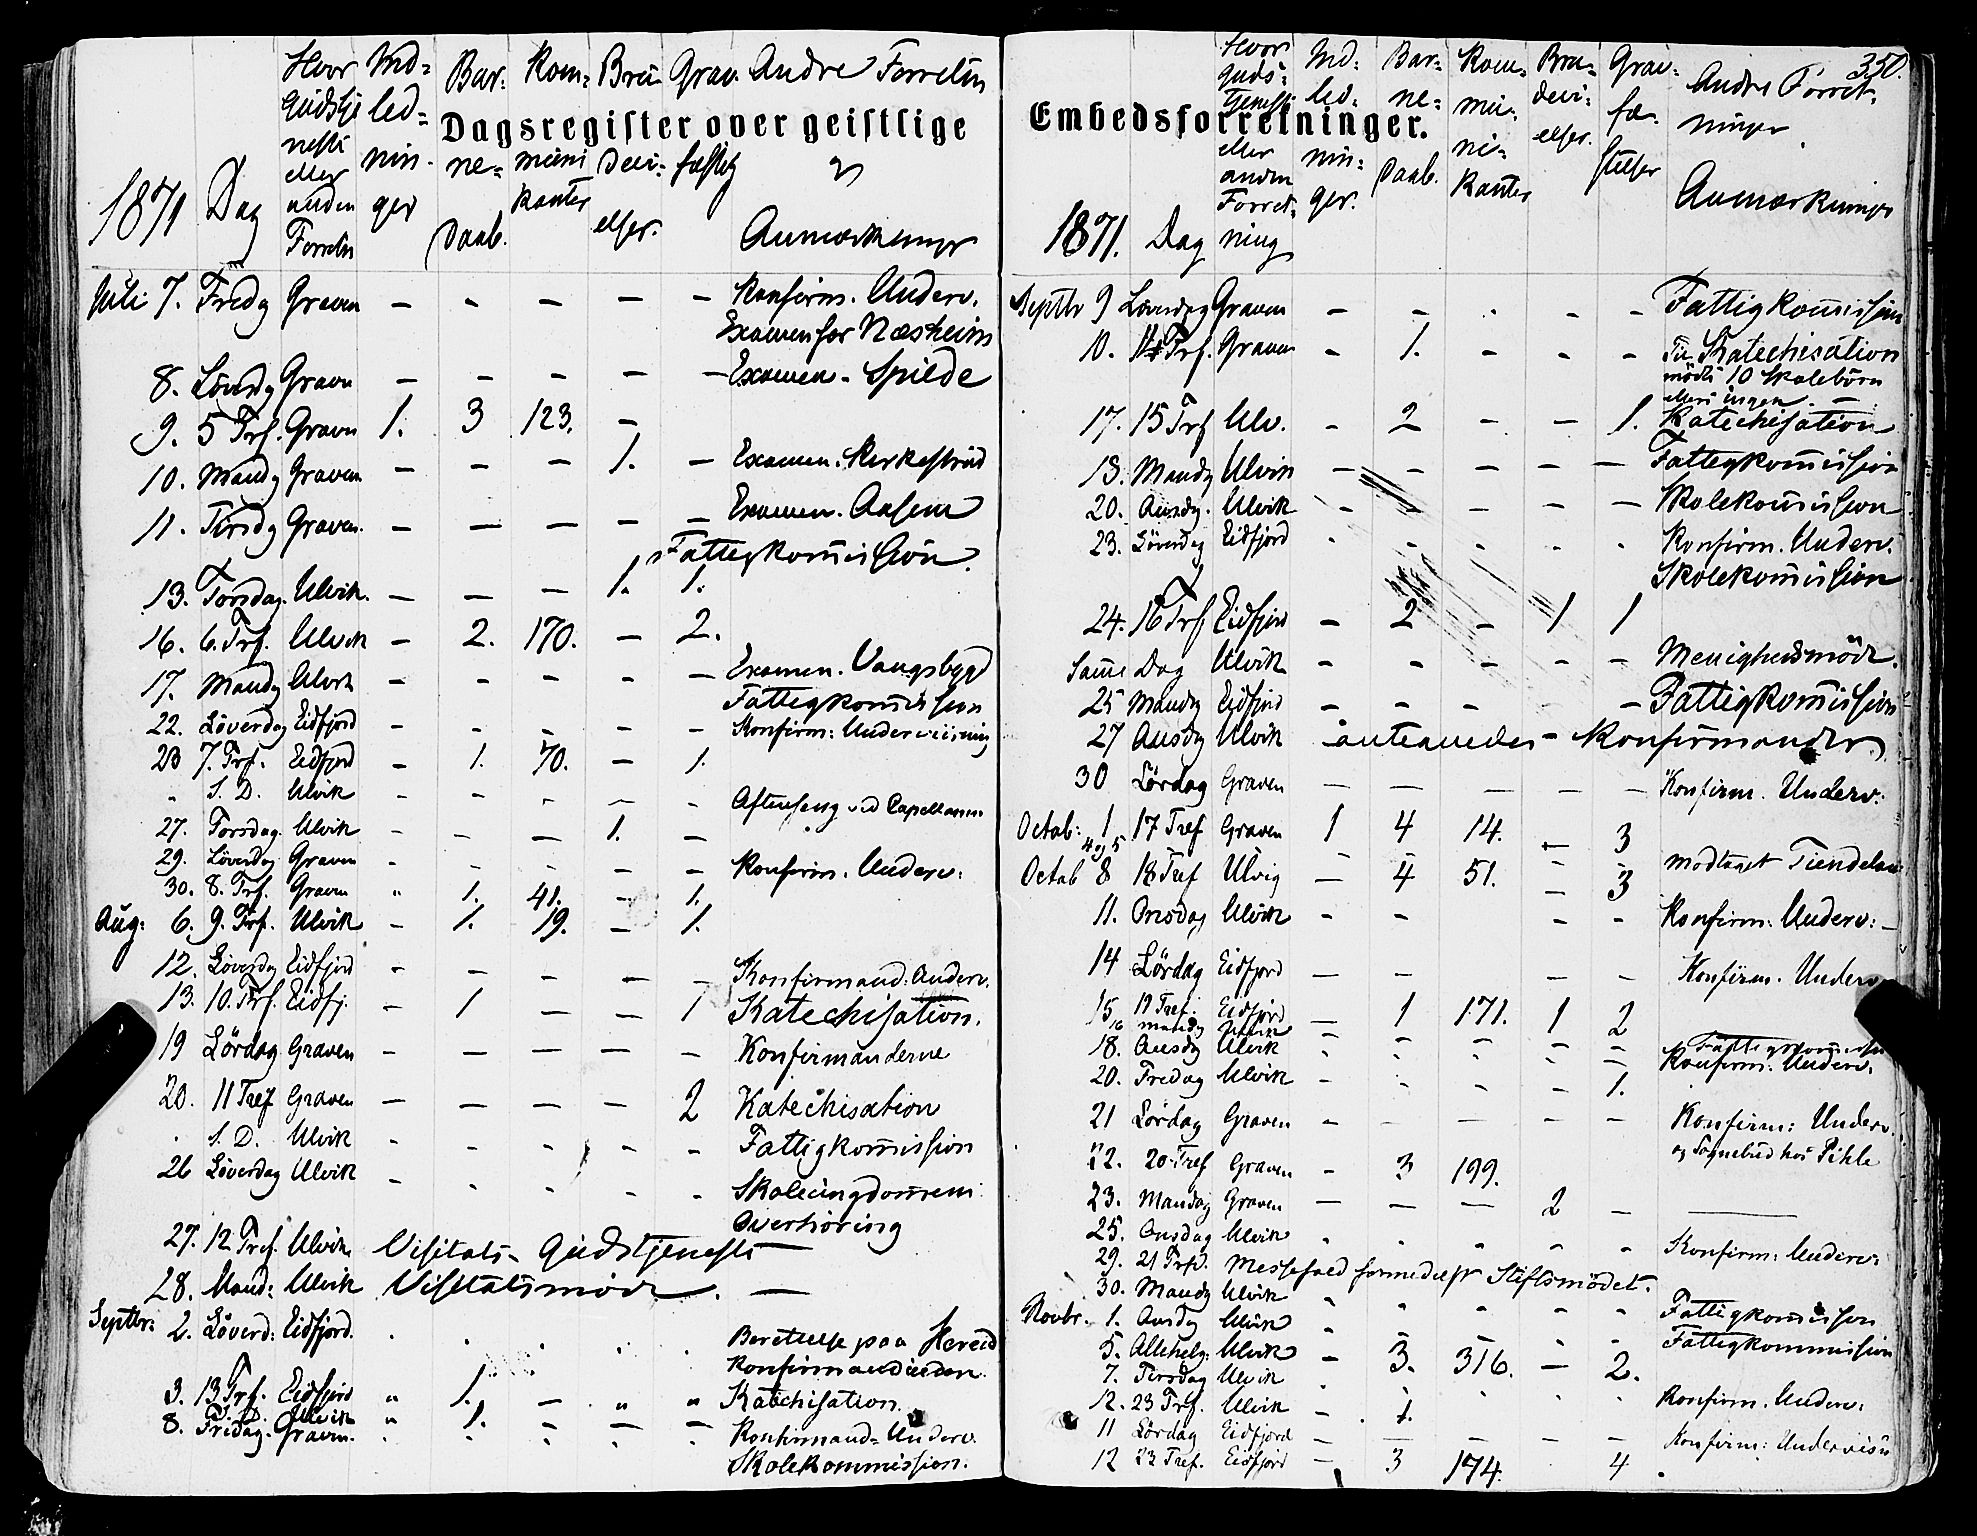 Dagsregister over geistlige
1871 Dag Hvor Gudstjeneste eller anden Forretn Indledninger Barnedaab. Kommunikanter Brudevielser. Gravfæstelser Andre Forretn Anmærkninger
Juli 7. Fredg Graven — - — — — Konfirm. Underv.
Examen for Næsheim
8. Löverdg Graven — - — — — Examen - Spilde
9. 5 Trf. Graven 1. 3 123. —
10. Mandg Graven — — — 1. — Examen. Kirkestrand
11. Tirsdg Graven. — — — — — Examen. Aasem
Fattigkommission.
13. Torsdag. Ulvik. — — — 1. 1.
16. 6. Trf. Ulvik — 2. 170. — 2.
17. Mandg Ulvik - - - - - Examen. Vangsbygd
Fattigkommission
22. Löverdag Eidfjord - - - - - Konfirm: Underviisning
23 7. Trf. Eidfjord - 1. 70. — 1.
" S. D. Ulvik - - - - - Aftensang ved Capellanen
27. Torsdag. Ulvik - — — 1. —
29. Löverdag Graven - - - - - Konfirm. Underv:
30. 8. Trf. Graven " 1. 41. - 1.
Aug: 6. 9. Trf. Ulvik - 1. 19. — 1.
12. Löverdg Eidfjord - - - - - Konfirmand: Underv.
13. 10. Trf. Eidfj. - 1 — — 1 Katechisation.
19 Lördag Graven — — — — - Konfirmanderne
20. 11 Tref Graven — — — — 2 Katechisation
. S. D. Ulvik - - - - - Fattigkommission
26 Löverdag Ulvik - - - - - Skoleungdommens
Overhöring
27. 12 Tref. Ulvik Visitats- Gudstjeneste —
28. Mand: Ulvik Visitatsmöde. —
Septbr: 2. Löverd: Eidfjord. . . . . . Berettelse paa Hereid
Konfirmand
3. 13 Trf. Eidfjord " 1. — " " Katechisation.
S. D. Ulvik " 1. - - -
8. Fredag. Graven. - - - - - Konfirmand= Underv.
Skolekommission.
Embedsforretninger.
350.
1871. Dag Hvor Gudstjeneste eller anden Forretning Indledninger. Barnedaab. Kommunikanter Brudevielser. Gravfæstelser Andre Forretninger. Anmærkninger
Septbr 9 Löverdag Graven - - . - - Fattigkommission
10. 14 Trf. Graven - 1. - - - Til Katechisation
mödte 10 Skolebörn
ellers ingen. —
17. 15 Trf Ulv. - 2 - — 1. Katechisation
18. Mandg Ulvik — — — — — Fattigkommission
20. Onsdg. Ulvik - - - - — Skolekommission
23. Löverdag Eidfjord - - - - - Konfirm. Underv.
Skolekommission
24. 16 Trf Eidfjord — 2 — 1 1
Samme Dag Ulvik - - - - — Menighedsmöde.
25 Mandg Eidfjord — — — — Fattigkommission
27 Onsdg Ulvik antevedes - Konfirmander.
30 Lördag Graven — — — — — Konfirm. Underv:
Octob: 1 17 Tref Graven 1 4 14. — 3
4 og 5 - - - - - Modtaget Tienden
Octob 8 18 Tref Ulvig — 4 51. — 3
11. Onsdag Ulvik - - - - Konfirm: Underv: -
14 Lördag Eidfjord — — — — Konfirm. Underv
15 19 Tref. Eidfjord — 1 171. 1 2
16 mandg Ulvik - - - - - Fattigkommission
18. Onsdg Ulvik - - - - - Konfirm: Underv.
20. Fredag Ulvik - - - - 1.
21 Lördag Graven - - — — — Konfirm: Underv.
og Sognebud hos Pihle
22. 20. Tref Graven - 3 199.
23. Mandag Graven — — — 2 — —
25. Onsdag Ulvik - - - - - Konfirm: Underv:
29. 21 Trf. Messefald formedelst Stiftsmödet.
30. Mandg Ulvik " - - - - Fattigkommission
Novbr. 1. Onsdg Ulvik - - - - - Fattigkommission
5. Allehelg: Ulvik — 3. 316. — 2.
7. Tirsdag Ulvik . . . . . Konfirm. Underv:
12. 23 Trf. Ulvik - 1.
11 Lördag Eidfjord — — — — — Konfirm: Undervisn
12 23 Tref. Eidfjord — 3 174. 4